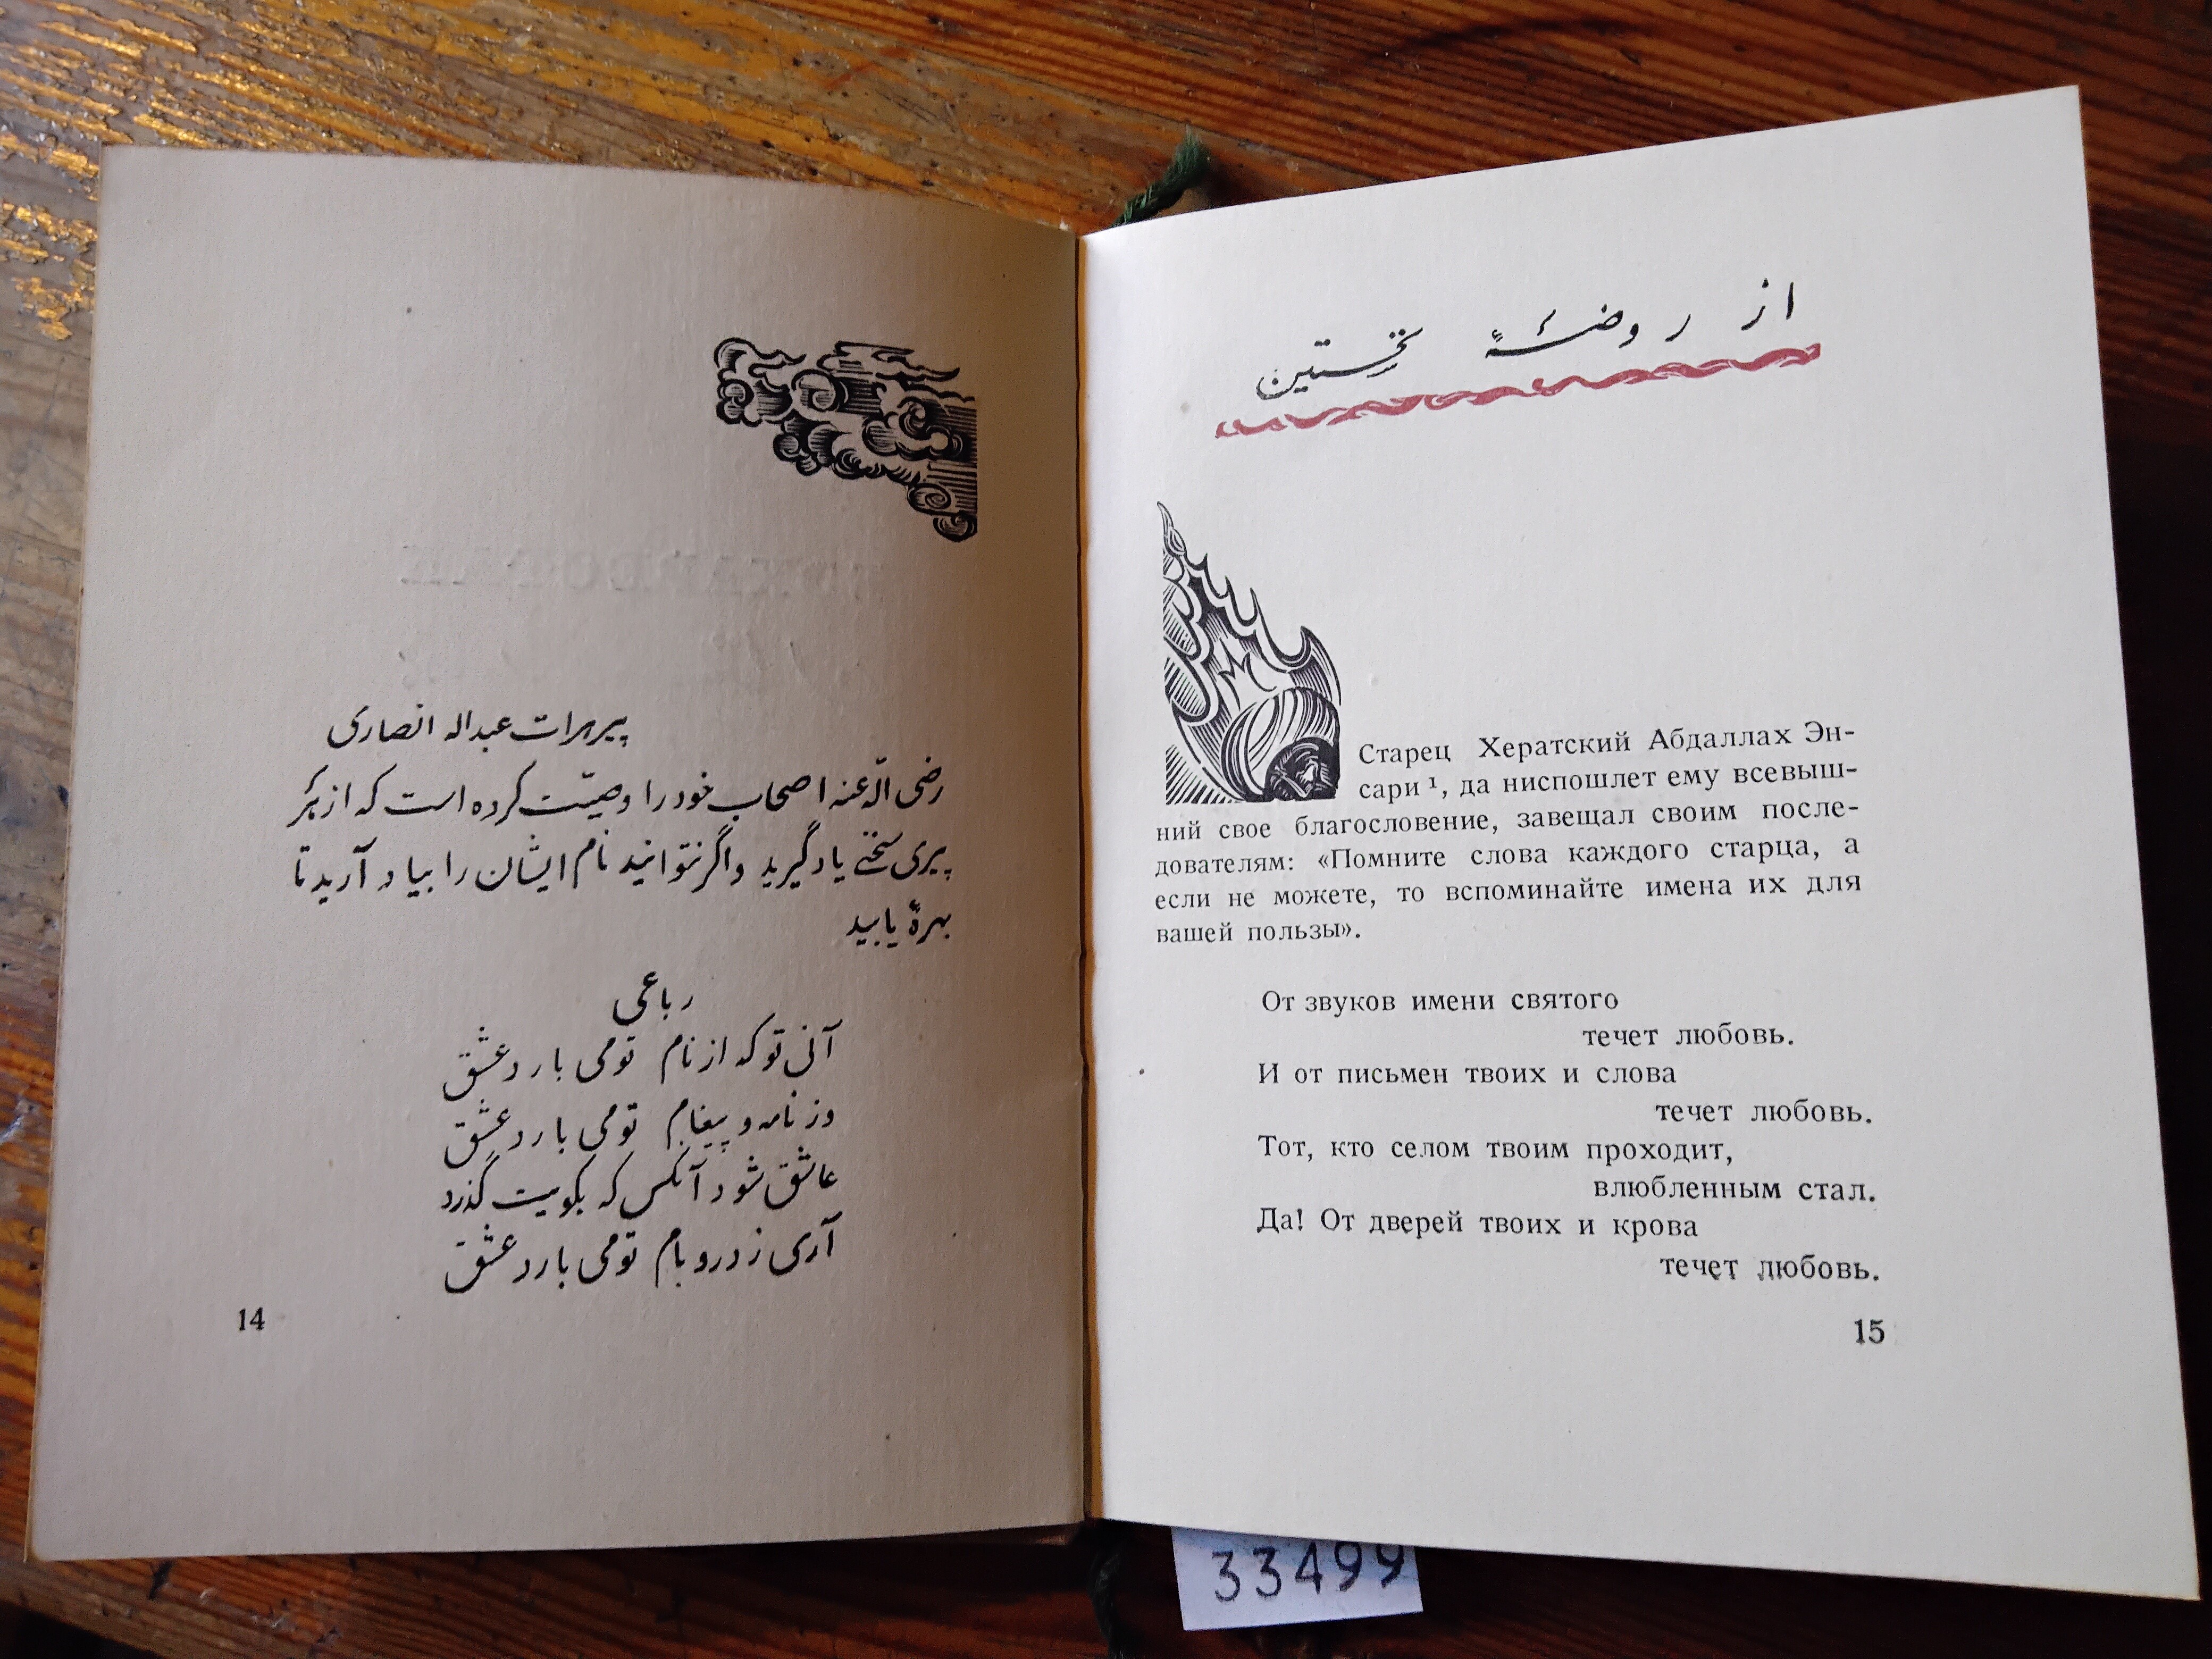 پیر هرات عبداله انصاری
رضی الله عنه اصحاب خود را وصیّت کرده است که از هر
پیری سخنے یاد گیرید واگر نتوانید نام ایشان را بیاد آرید تا
بهرهٔ یابید
رباعی
آنی تو که از نام تو می بارد عشق
وز نامه و پیغام تو می بارد عشق
عاشق شود آنکس که بکویت گذرد
آری ز در و بام تو می بارد عشق
14
از روضهٔ نخستین
Старец Хератский Абдаллах Эн-
сари ¹, да ниспошлет ему всевыш-
ний свое благословение, завещал своим после-
дователям: «Помните слова каждого старца, а
если не можете, то вспоминайте имена их для
вашей пользы».
От звуков имени святого
течет любовь.
И от письмен твоих и слова
течет любовь.
Тот, кто селом твоим проходит,
влюбленным стал.
Да! От дверей твоих и крова
течет любовь.
15
33499